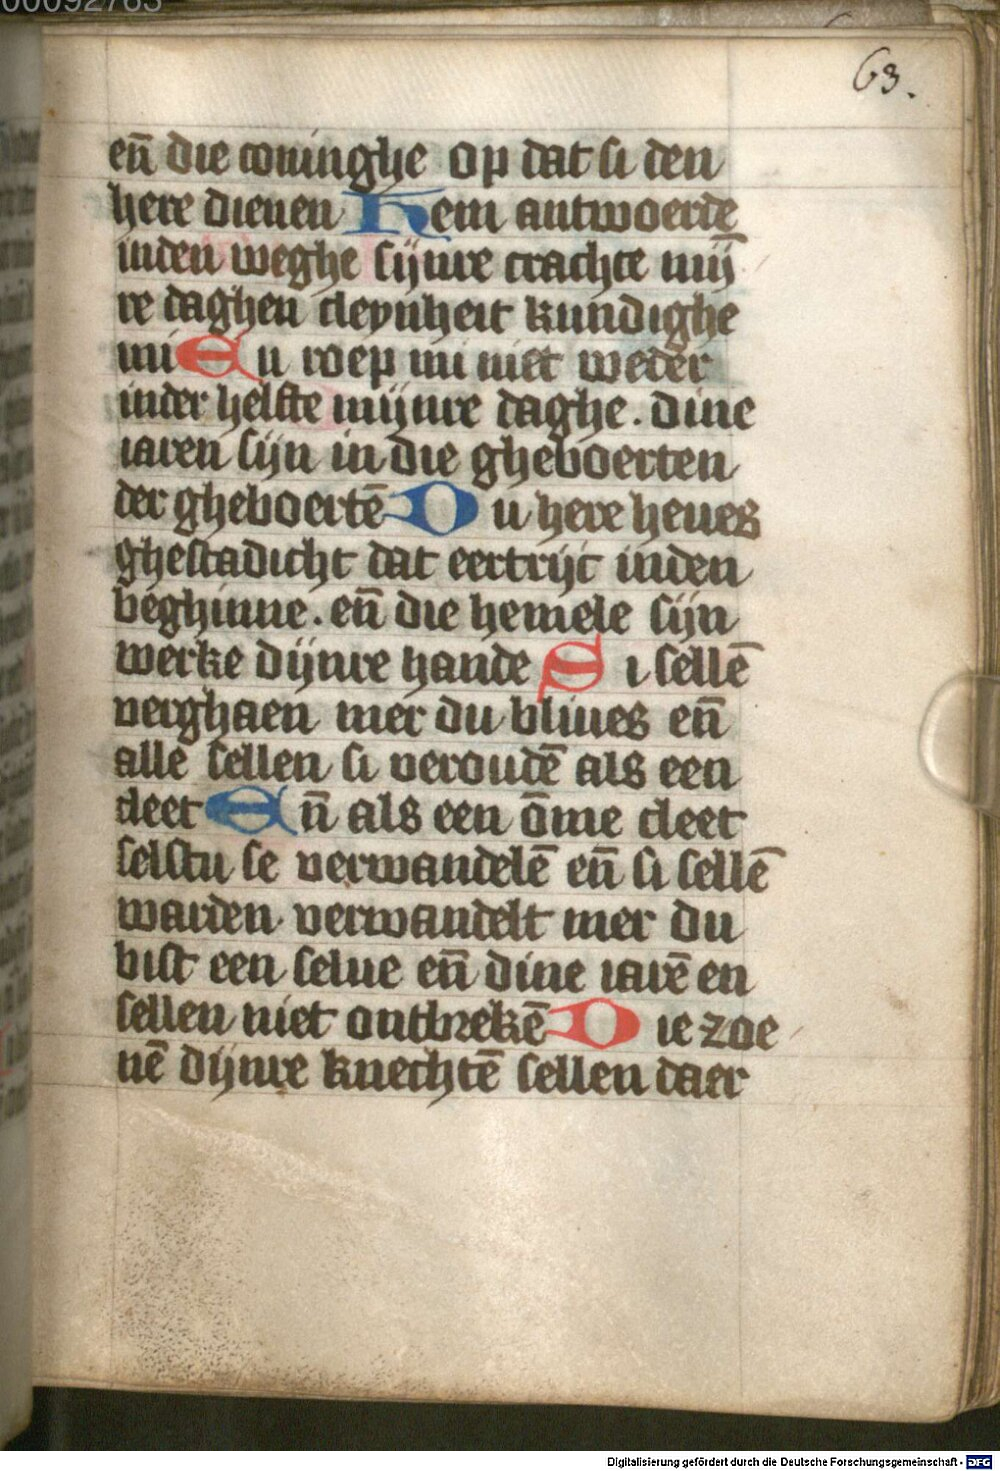 00092763
63.
en̄ die coninghe op dat si den
here dienen Hem antwoerde
inden weghe sijnre crachte mij̄
re daghen cleynheit kundighe
mi En roep mi niet weder
inder helfte mijnre daghe. dine
iaren sijn in die gheboerten
der gheboertē Du here heues
ghestadicht dat eertrijc inden
beghinne. en̄ die hemele sijn
werke dijnre hande Si sellē
verghaen mer du bliues en̄
alle sellen si veroudē als een
cleet En̄ als een ōme cleet
selstu se verwandelē en̄ si sellē
warden verwandelt mer du
bist een selue en̄ dine iarē en
sellen niet ontbrekē Die zoe
nē dijnre knechtē sellen daer
Digitalisierung gefördert durch die Deutsche Forschungsgemeinschaft - DFG